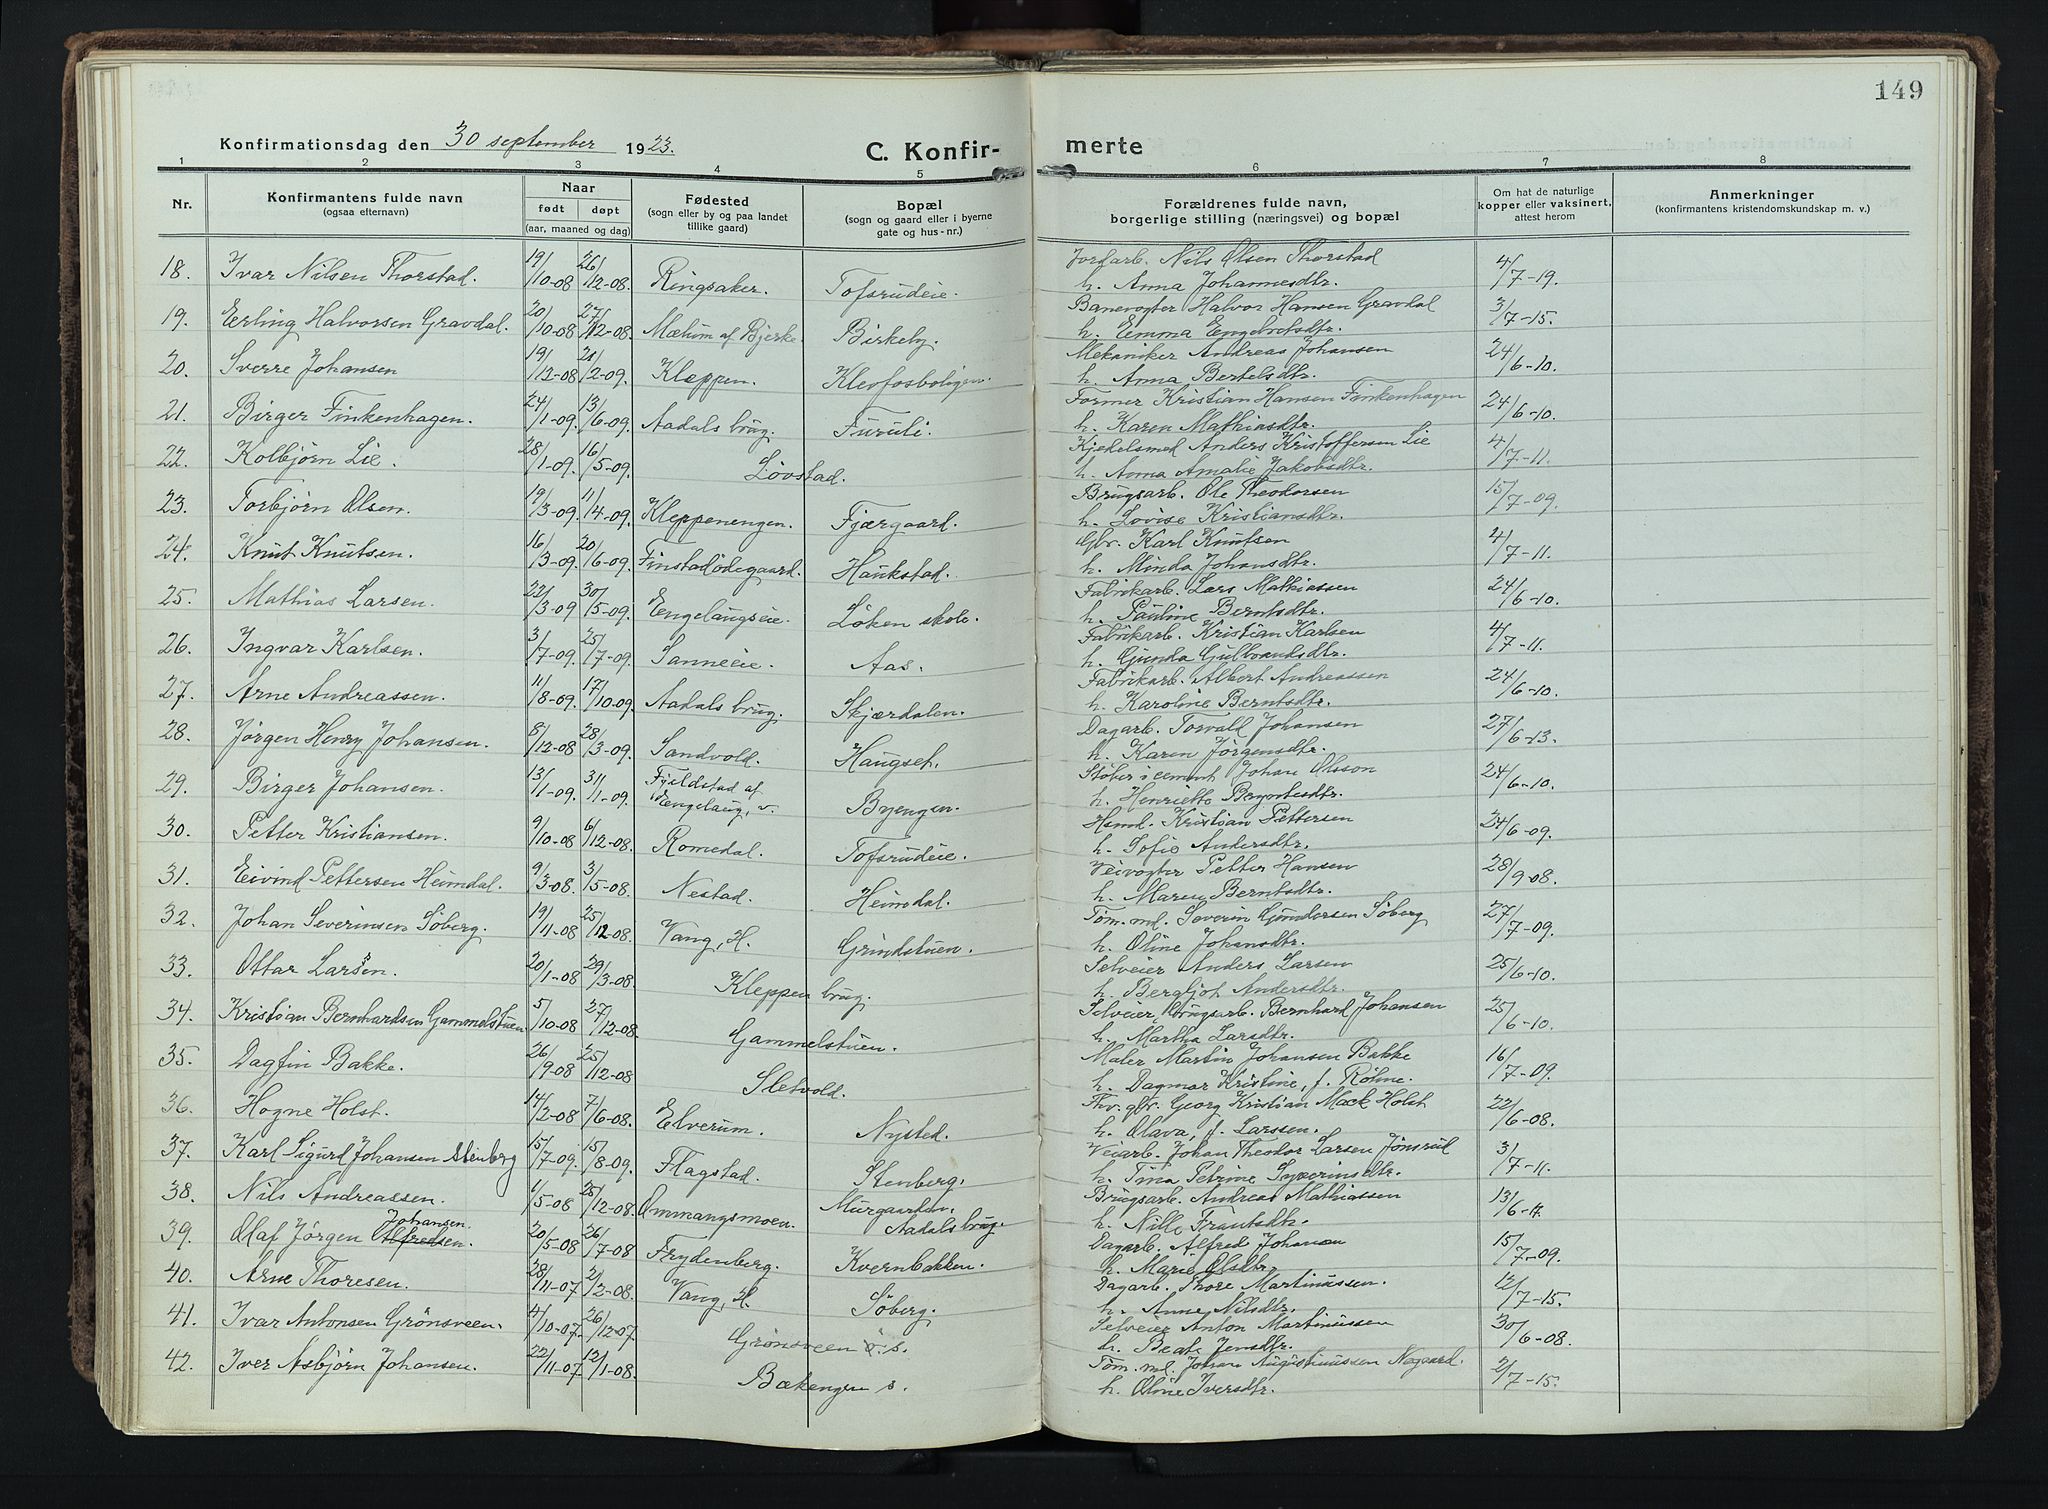 149
Konfirmationsdag den 30 september 1923.
C. Konfir-
merte
1 2 3 4 5 6 7 8
Nr.
Konfirmantens fulde navn
(ogsaa efternavn)
Naar
født døpt
(aar, maaned og dag)
Fødested
(sogn eller by og paa landet
tillike gaard)
Bopæl
(sogn og gaard eller i byerne
gate og hus-nr.)
Forældrenes fulde navn,
borgerlige stilling (næringsvei) og bopæl
Om hat de naturlige
kopper eller vaksinert,
attest herom
Anmerkninger
(konfirmantens kristendomskundskap m. v.)
18. Ivar Nilsen Thorstad. 19/10-08 26/12-08. Ringsaker. Tofsrudeie. Jordarb. Nils Olsen Thorstad 4/7-19.
h. Anna Johannesdtr.
19. Erling Halvorsen Gravdal. 20/10-08 27/12-08. Mælum af Bjerke. Birkeby. Banevogter Halvor Hansen Gravdal 3/7-15.
h. Emma Engebretsdtr.
20. Sverre Johansen 19/12-08 21/2-09. Kleppen. Klevfosboligen. Mekaniker Andreas Johansen 24/6-10.
h. Anna Bertelsdtr.
21. Birger Finkenhagen. 24/1-09. 13/6-09. Aadals brug. Furuli. Former Kristian Hansen Finkenhagen 24/6-10.
h. Karen Mathiasdtr.
22. Kolbjørn Lie. 28/1-09. 16/5-09. Løvstad. Kjedelsmed Anders Kristoffersen Lie 4/7-11.
h. Anna Amalie Jakobsdtr.
23. Torbjørn Olsen. 19/3-09. 11/4-09. Kleppenengen. Fjærgaard. Brugsarb. Ole Theodorsen 15/7-09.
h. Lovise Kristiansdtr.
24. Knut Knutsen. 16/3-09. 20/6-09. Finstadødegaard. Haukstad. Gbr. Karl Knutsen 4/7-11.
h. Minda Johansdtr.
25. Mathias Larsen. 22/3-09 30/5-09. Engelaugseie. Løken skole. Fabrikarb. Lars Mathiassen 24/6-10.
h. Pauline Berntsdtr.
26. Ingvar Karlsen. 3/7-09. 25/7-09. Sanneeie. Aas. Fabrikarb. Kristian Karlsen 4/7-11.
h. Gunda Gulbrandsdtr.
27. Arne Andreassen. 11/8-09. 17/10-09. Aadals brug. Skjærdalen. Fabrikarb. Albert Andreassen 24/6-10.
h. Karoline Berntsdtr.
28. Jørgen Henry Johansen. 8/12-08 28/3-09. Sandvold. Haugset. Dagarb. Torvald Johansen 27/6-13.
h. Karen Jørgensdtr.
29. Birger Johansen. 13/1-09. 31/1-09. Fjeldstad af Engelaug, v. Byengen. Støber i cement Johan Olsson 24/6-10.
h. Henriette Bergitesdtr.
30. Petter Kristiansen. 9/10-08 6/12-08. Romedal. Tofsrudeie. Hsmd. Kristian Pettersen 24/6-09.
h. Sofie Andersdtr.
31. Eivind Pettersen Heimdal. 9/3-08. 3/5-08. Nestad. Heimdal. Veivogter Petter Hansen 28/9-08.
h. Maren Berntsdtr.
32. Johan Severinsen Søberg. 19/11-08 25/12-08. Vang, H. Grindstuen. Tøm.md. Severin Gundersen Søberg 27/7-09.
h. Oline Johansdtr.
33. Ottar Larsen. 20/1-08 29/3-08. Kleppen brug. Selveier Anders Larsen 25/6-10.
h. Bergljot Andersdtr.
34. Kristian Bernhardsen Gammelstuen 5/10-08 27/12-08. Gammelstuen. Selveier, brugsarb. Bernhard Johansen 25/6-10.
h. Martha Larsdtr.
35. Dagfin Bakke. 26/9-08 25/12-08 Sletvold. Maler Martin Johansen Bakke 16/7-09.
h. Dagmar Kristine, f. Røhne.
36. Hogne Holst. 14/2-08 7/6-08. Elverum. Nysted. Fhv. gbr. Georg Kristian Mack Holst 22/6-08.
h. Olava, f. Larssen.
37. Karl Sigurd Johansen Stenberg 15/7-09. 15/8-09. Flagstad. Stenberg. Veiarb. Johan Theodor Larsen Jønsrud 3/7-11.
h. Tina Petrine Syverinsdtr.
38. Nils Andreassen. 1/5-08 25/12-08. Ommangsmoen. Murgaarden, Aadals brug. Brugsarb. Andreas Mathiassen 13/6-11.
h. Nille Frantsdtr.
39. Olaf Jørgen Alfredsen. Johansen. 20/5-08 26/7-08 Frydenberg. Kvernbakken. Dagarb. Alfred Johansen 15/7-09.
h. Marie Olsdtr.
40. Arne Thoresen. 28/11-07 2/2-08. Vang, H. Søberg. Dagarb. Thore Martinussen. 12/7-15.
h. Anne Nilsdtr.
41. Ivar Antonsen Grønsveen. 4/10-07. 26/12-07. Grønsveen s. Selveier Anton Martinussen 30/6-08.
h. Beate Jensdtr.
42. Iver Asbjørn Johansen. 22/11-07. 12/1-08. Bækengen s. Tøm.md. Johan Augustinussen Nøgaard. 2/7-15.
h. Oline Iversdtr.